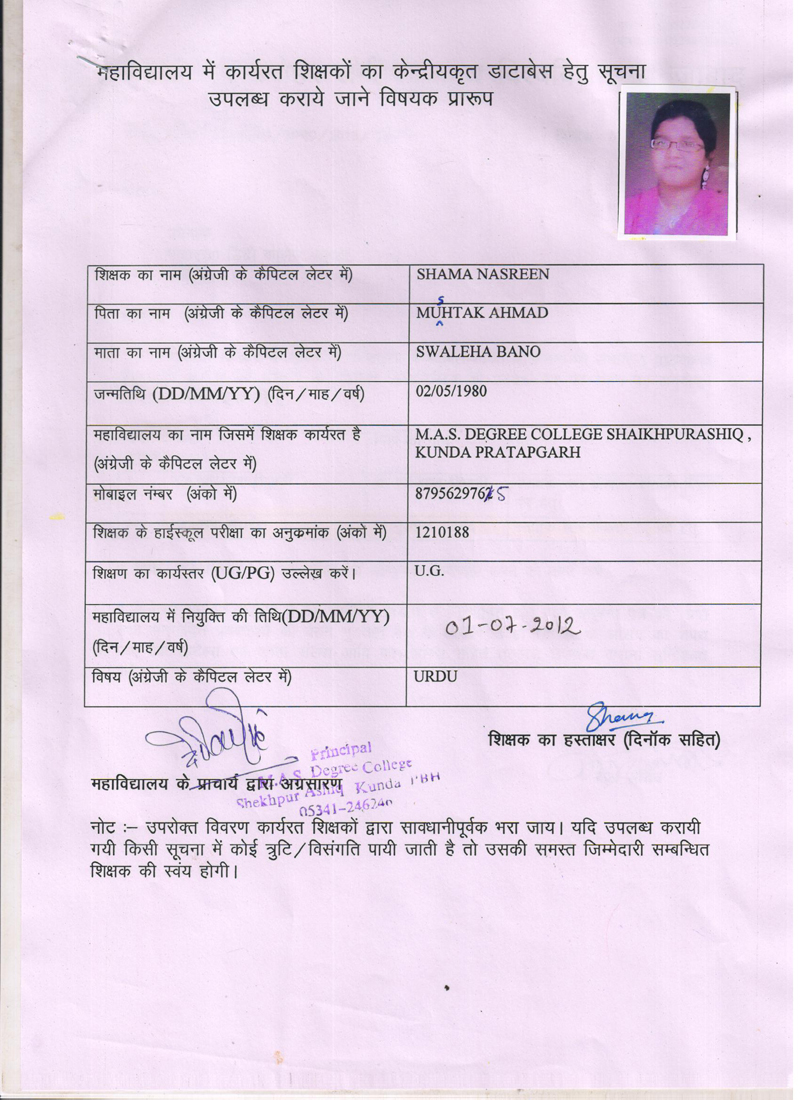 महाविद्यालय में कार्यरत शिक्षकों का केन्द्रीयकृत डाटाबेस हेतु सूचना
उपलब्ध कराये जाने विषयक प्रारूप
शिक्षक का नाम (अंग्रेजी के कैपिटल लेटर में) SHAMA NASREEN
पिता का नाम (अंग्रेजी के कैपिटल लेटर में) MUSHTAK AHMAD
माता का नाम (अंग्रेजी के कैपिटल लेटर में) SWALEHA BANO
जन्मतिथि (DD/MM/YY) (दिन/माह/वर्ष) 02/05/1980
महाविद्यालय का नाम जिसमें शिक्षक कार्यरत है M.A.S. DEGREE COLLEGE SHAIKHPURASHIQ ,
(अंग्रेजी के कैपिटल लेटर में) KUNDA PRATAPGARH
मोबाइल नंम्बर (अंको में) 8795629765
शिक्षक के हाईस्कूल परीक्षा का अनुक्रमांक (अंको में) 1210188
शिक्षण का कार्यस्तर (UG/PG) उल्लेख करें। U.G.
महाविद्यालय में नियुक्ति की तिथि(DD/MM/YY) 01-07-2012
(दिन/माह/वर्ष)
विषय (अंग्रेजी के कैपिटल लेटर में) URDU
Shama
शिक्षक का हस्ताक्षर (दिनॉक सहित)
महाविद्यालय के प्राचार्य द्वारा अग्रसारण
Principal
M.A.S. Degree College
Shekhpur Ashiq Kunda PBH
05341-246240
नोट :– उपरोक्त विवरण कार्यरत शिक्षकों द्वारा सावधानीपूर्वक भरा जाय। यदि उपलब्ध करायी
गयी किसी सूचना में कोई त्रुटि/विसंगति पायी जाती है तो उसकी समस्त जिम्मेदारी सम्बन्धित
शिक्षक की स्वंय होगी।